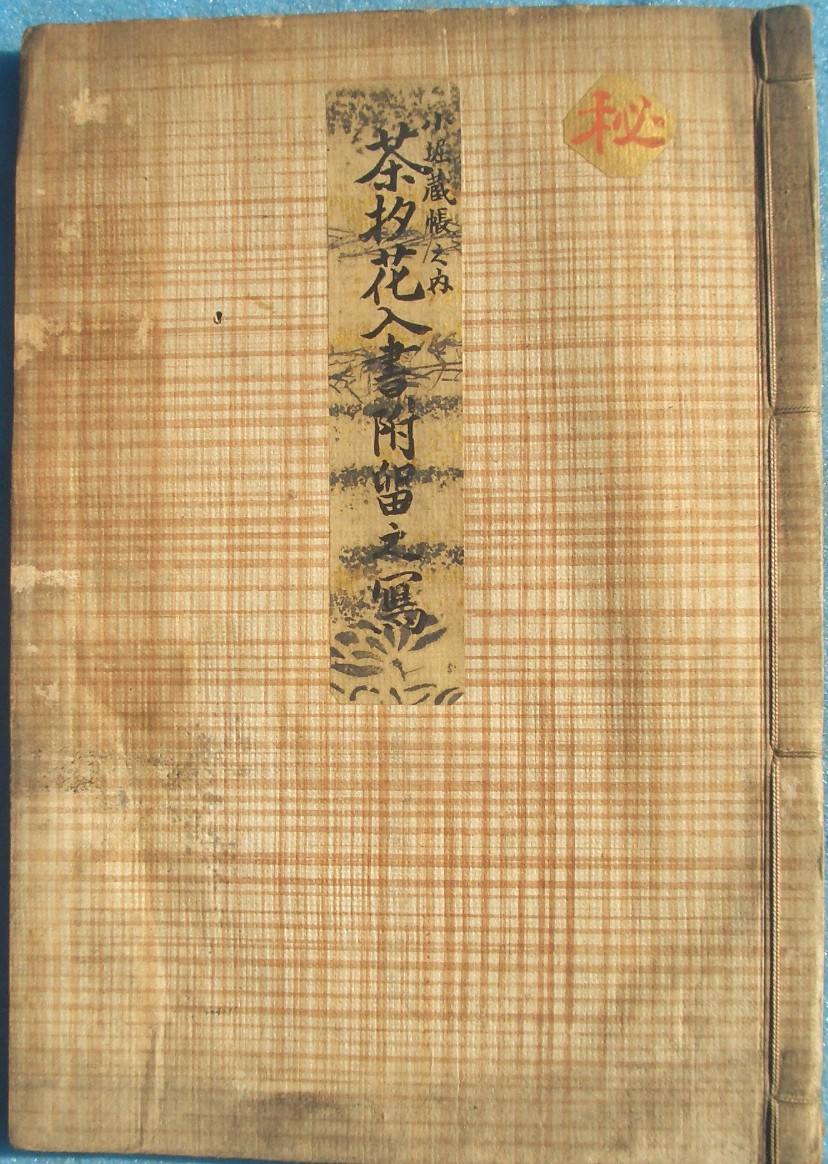 秘
小堀蔵帳之内
茶杓花入書附留之寫